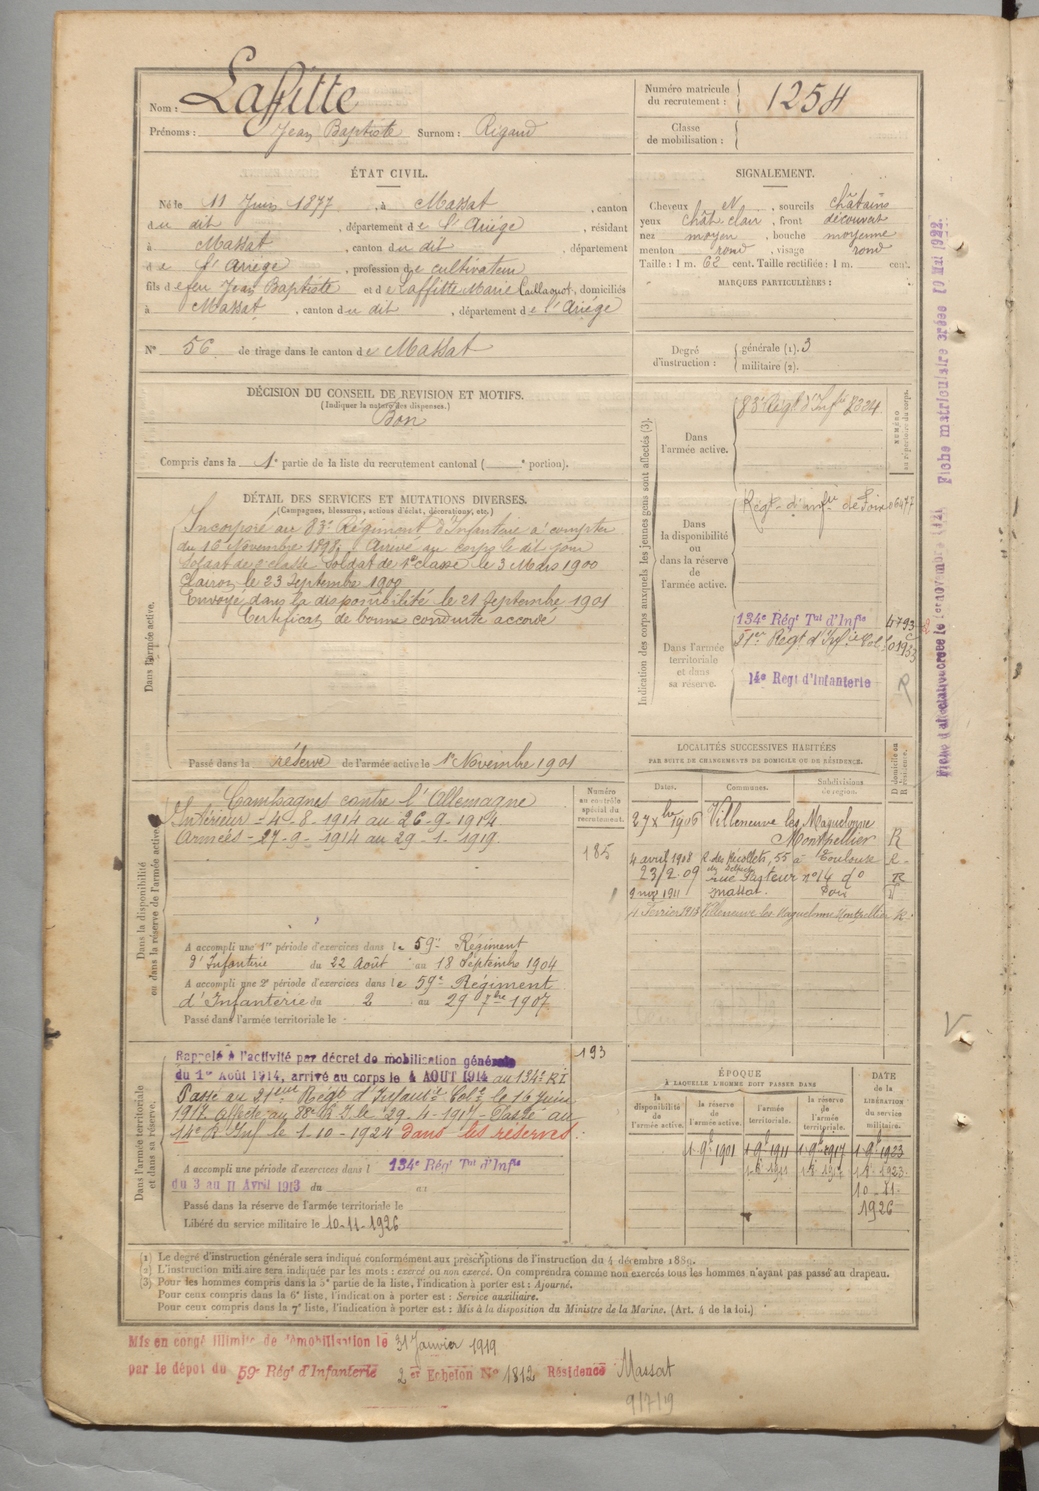 Nom : Laffitte
Prénoms : Jean Baptiste Surnom : Rigaud
Numéro matricule du recrutement : 1254
Classe de mobilisation :
ÉTAT CIVIL.
Né le 11 Juin 1877, à Massat, canton
du dit, département de l'Ariège, résidant
à Massat, canton du dit, département
de l'Ariège, profession de cultivateur
fils de feu Jean Baptiste et de Laffitte Marie Caillaquot, domiciliés
à Massat, canton du dit, département de l'Ariége
N° 56 de tirage dans le canton de Massat
SIGNALEMENT.
Cheveux et, sourcils châtains
yeux chât clair, front découvert
nez moyen, bouche moyenne
menton rond, visage rond
Taille : 1 m. 62 cent. Taille rectifiée : 1 m. cent.
MARQUES PARTICULIÈRES :
Degré d'instruction : générale (1). 3
militaire (2).
DÉCISION DU CONSEIL DE REVISION ET MOTIFS.
(Indiquer la nature des dispenses.)
Bon
Compris dans la 1e partie de la liste du recrutement cantonal ( e portion).
DÉTAIL DES SERVICES ET MUTATIONS DIVERSES.
(Campagnes, blessures, actions d'éclat, décorations, etc.)
Dans l'armée active.
Incorporé au 83e Régiment d'Infanterie à compter
du 16 Novembre 1898. Arrivé au corps le dit jour
Soldat de 2e classe Soldat de 1re classe le 3 Mars 1900
Clairon le 23 Septembre 1900
Envoyé dans la disponibilité le 21 Septembre 1901
Certificat de bonne conduite accordé
Passé dans la réserve de l'armée active le 1er Novembre 1901
Indication des corps auxquels les jeunes gens sont affectés (3).
NUMÉRO au répertoire du corps.
Dans l'armée active.
83e Régt d'Infie
Dans la disponibilité ou dans la réserve de l'armée active.
Régt d'infie de Foix 06477
Dans l'armée territoriale et dans sa réserve.
134e Régt Tal d'Infie 4793
Régt d'Infie Col
14e Regt d'Infanterie
R
LOCALITÉS SUCCESSIVES HABITÉES
PAR SUITE DE CHANGEMENTS DE DOMICILE OU DE RÉSIDENCE.
Dates. Communes. Subdivisions de région. D domicile ou R résidence.
27 Xbre 1906 Villeneuve les Maguelonne
Montpellier R
4 avril 1908 R des Récollets, 55 à Toulouse R
23/2 09 rue Pasteur n° 14 do R
9 nov 1911 Massat. Foix D
4 Fevrier 1913 Villeneuve les Maguelonne Montpellier R.
Dans la disponibilité ou dans la réserve de l'armée active.
Numéro au contrôle spécial du recrutement.
185
Campagnes contre l'Allemagne
Intérieur - 4-8-1914 au 26-9-1914
Armées - 27-9-1914 au 29-1-1919.
A accompli une 1re période d'exercices dans le 59e Régiment
d'Infanterie du 22 Août au 18 Septembre 1904
A accompli une 2e période d'exercices dans le 59e Régiment
d'Infanterie du 2 au 29 7bre 1907
Passé dans l'armée territoriale le
Dans l'armée territoriale et dans sa réserve.
193
Rappelé à l'activité par décret de mobilisation générale
du 1er Août 1914, arrivé au corps le 4 AOUT 1914 au 134e R.I.
Passé au 21eme Régt d'Infanie Colle le 16 Juin
1917. Affecté au 88e R.I. le 29-4-1917 - Passé au
14e R. Inf le 1-10-1924 dans les réserves.
A accompli une période d'exercices dans l 134e Régt Tal d'Infie
du 3 au 11 Avril 1913 du au
Passé dans la réserve de l'armée territoriale le
Libéré du service militaire le 10-11-1926
ÉPOQUE
À LAQUELLE L'HOMME DOIT PASSER DANS
DATE de la LIBÉRATION du service militaire.
la disponibilité de l'armée active. la réserve de l'armée active. l'armée territoriale. la réserve de l'armée territoriale.
1-9bre 1901 1-9bre 1911 1-9bre 1917 1-9bre 1923
10-11-
1926
(1) Le degré d'instruction générale sera indiqué conformément aux prescriptions de l'instruction du 4 décembre 1889.
(2) L'instruction militaire sera indiquée par les mots : exercé ou non exercé. On comprendra comme non exercés tous les hommes n'ayant pas passé au drapeau.
(3) Pour les hommes compris dans la 5e partie de la liste, l'indication à porter est : Ajourné.
Pour ceux compris dans la 6e liste, l'indication à porter est : Service auxiliaire.
Pour ceux compris dans la 7e liste, l'indication à porter est : Mis à la disposition du Ministre de la Marine. (Art. 4 de la loi.)
Mis en congé illimité de démobilisation le 31 Janvier 1919
par le dépot du 59e Régt d'Infanterie 2e Echelon N° 1812 Résidence Massat
9/7/19
Fiche matriculaire créée 10 Mai 1922.